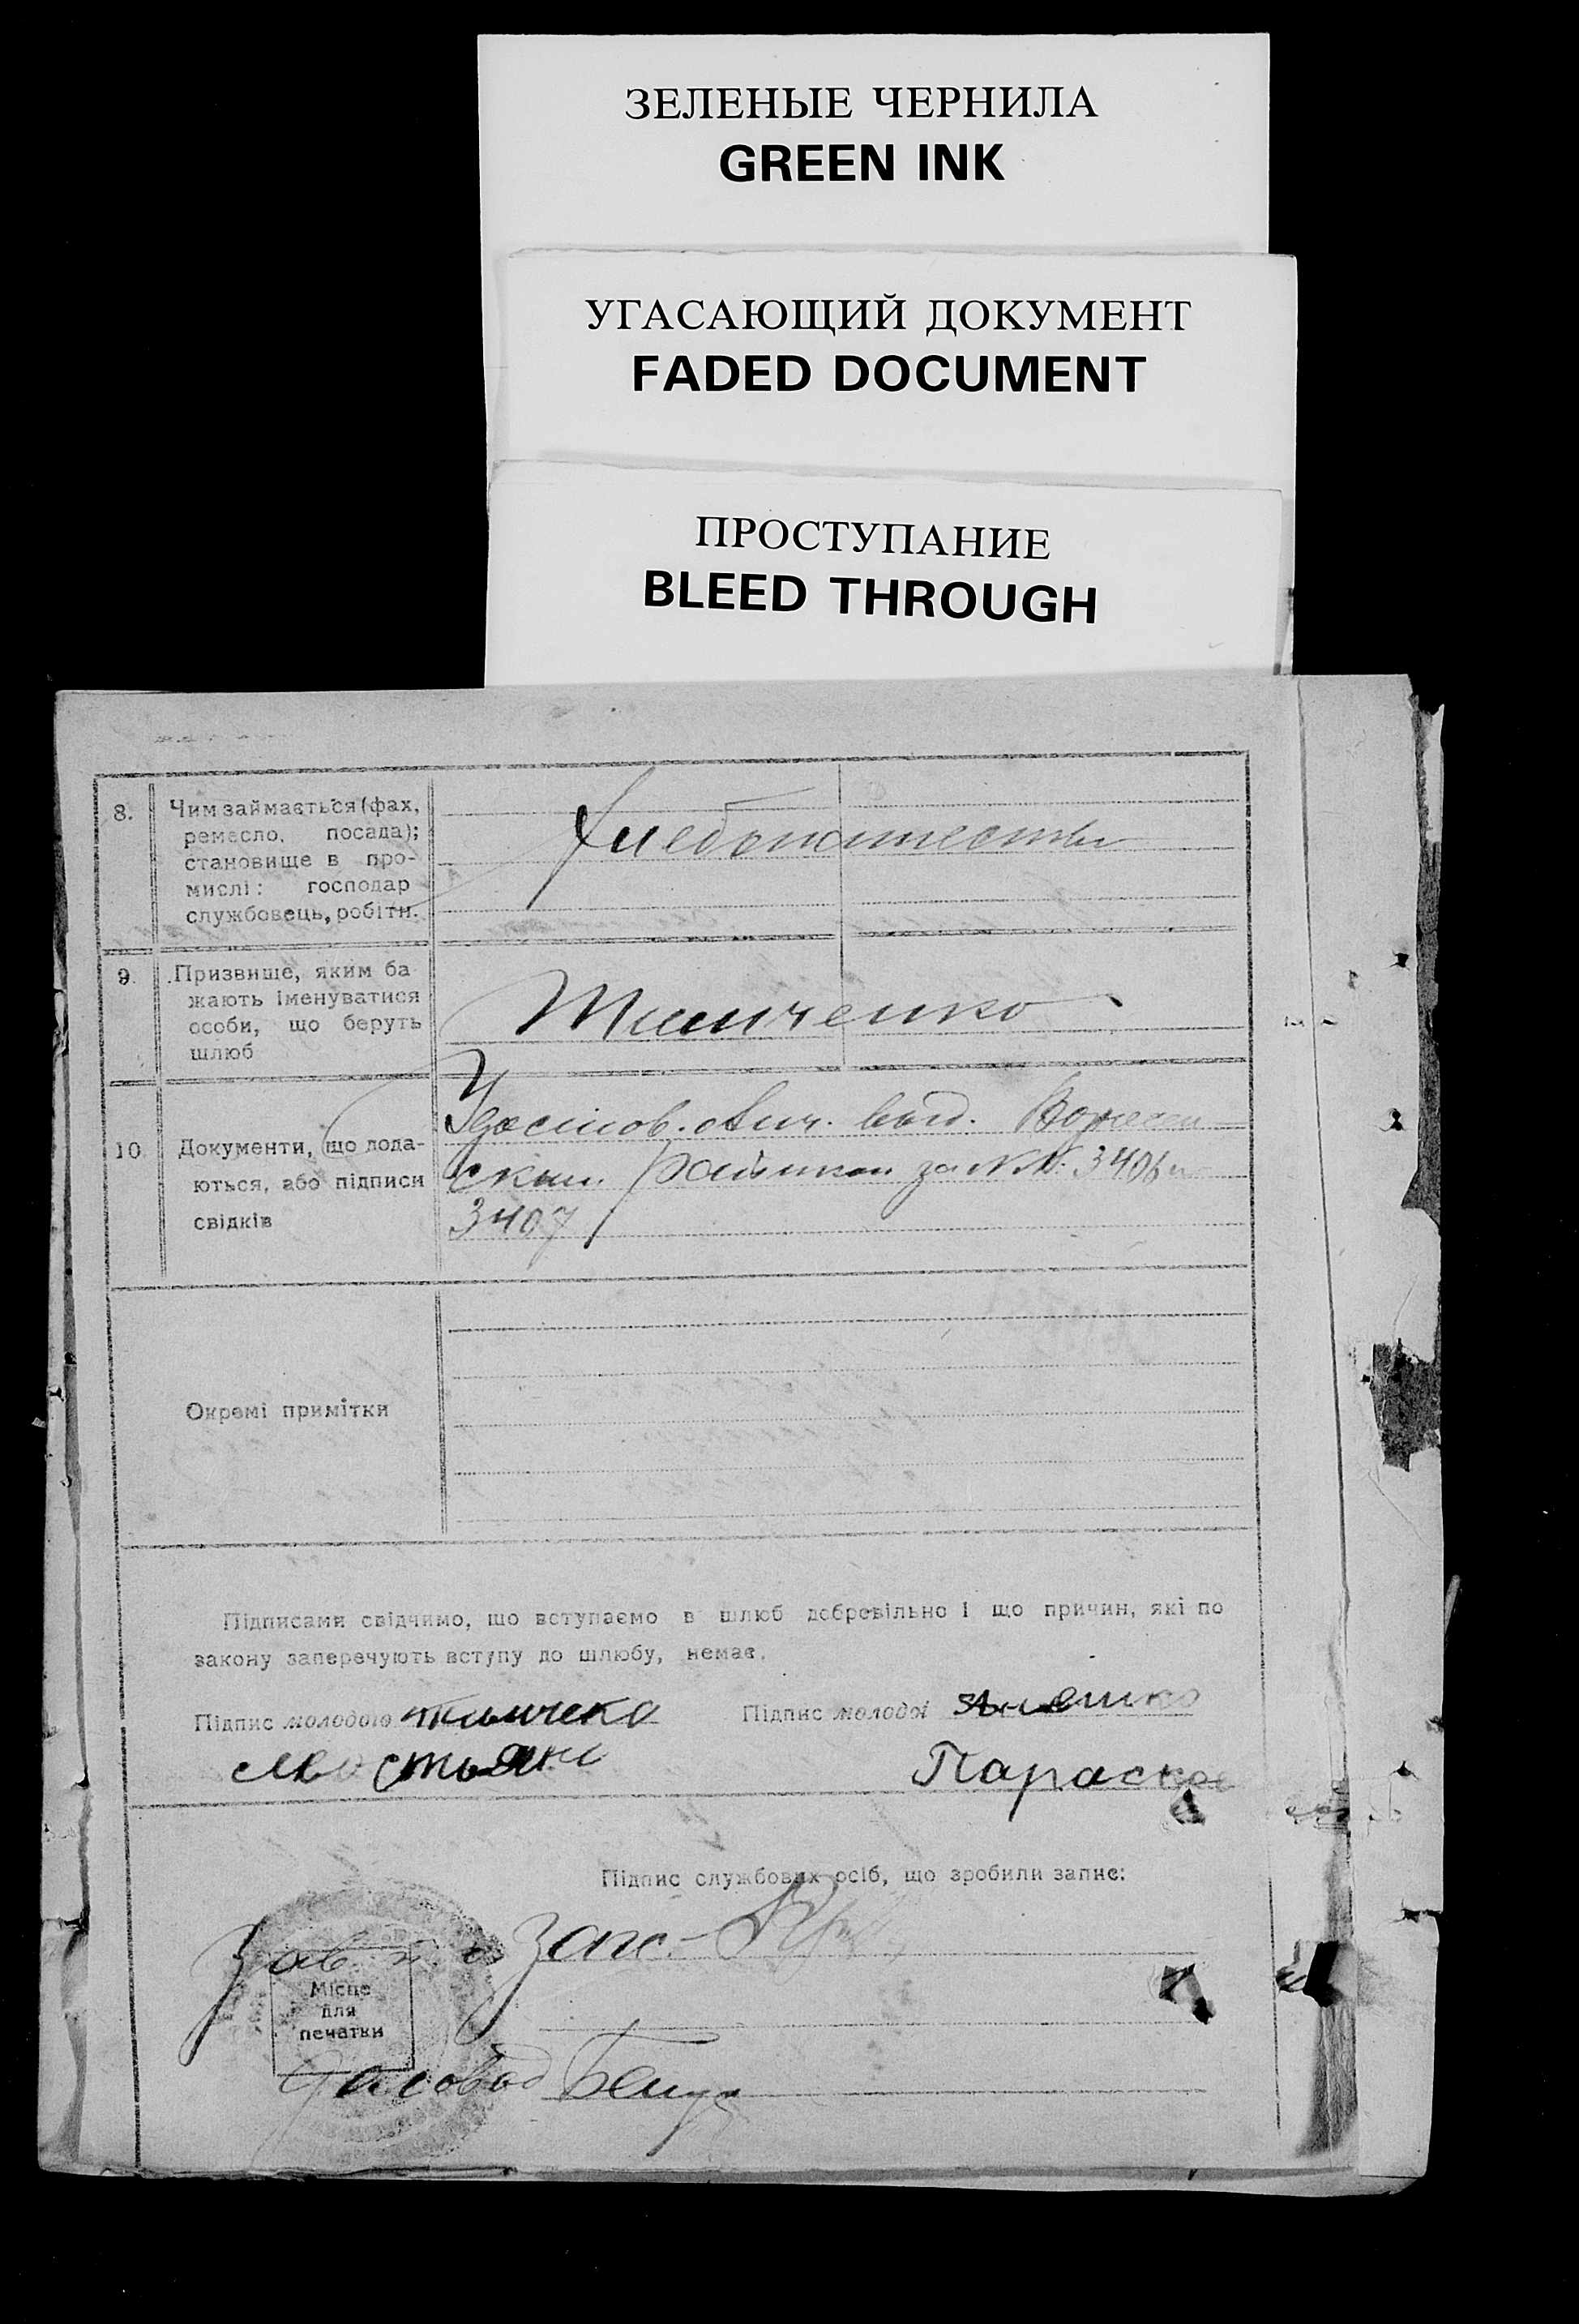 ЗЕЛЕНЫЕ ЧЕРНИЛА
GREEN INK
УГАСАЮЩИЙ ДОКУМЕНТ
FADED DOCUMENT
ПРОСТУПАНИЕ
BLEED THROUGH
8. Чим займається (фах,
ремесло, посада);
становище в про-
мислі: господар
службовець, робітн.
9. Призвище, яким ба
жають іменуватися
особи, що беруть
шлюб
Тимченко
10. Документи, що пода-
ються, або підписи
свідків
Удостов. лич. выд. Вознесен
ским за №№ 3406 и
3407
Окремі примітки
Підписами свідчимо, що вступаємо в шлюб добровільно і що причин, які по
закону заперечують вступу до шлюбу, немає.
Підпис молодого Тимчеко
Підпис молодої
Параска
Підпис службових осіб, що зробили запис:
Зав. Загс
Місце
для
печатки